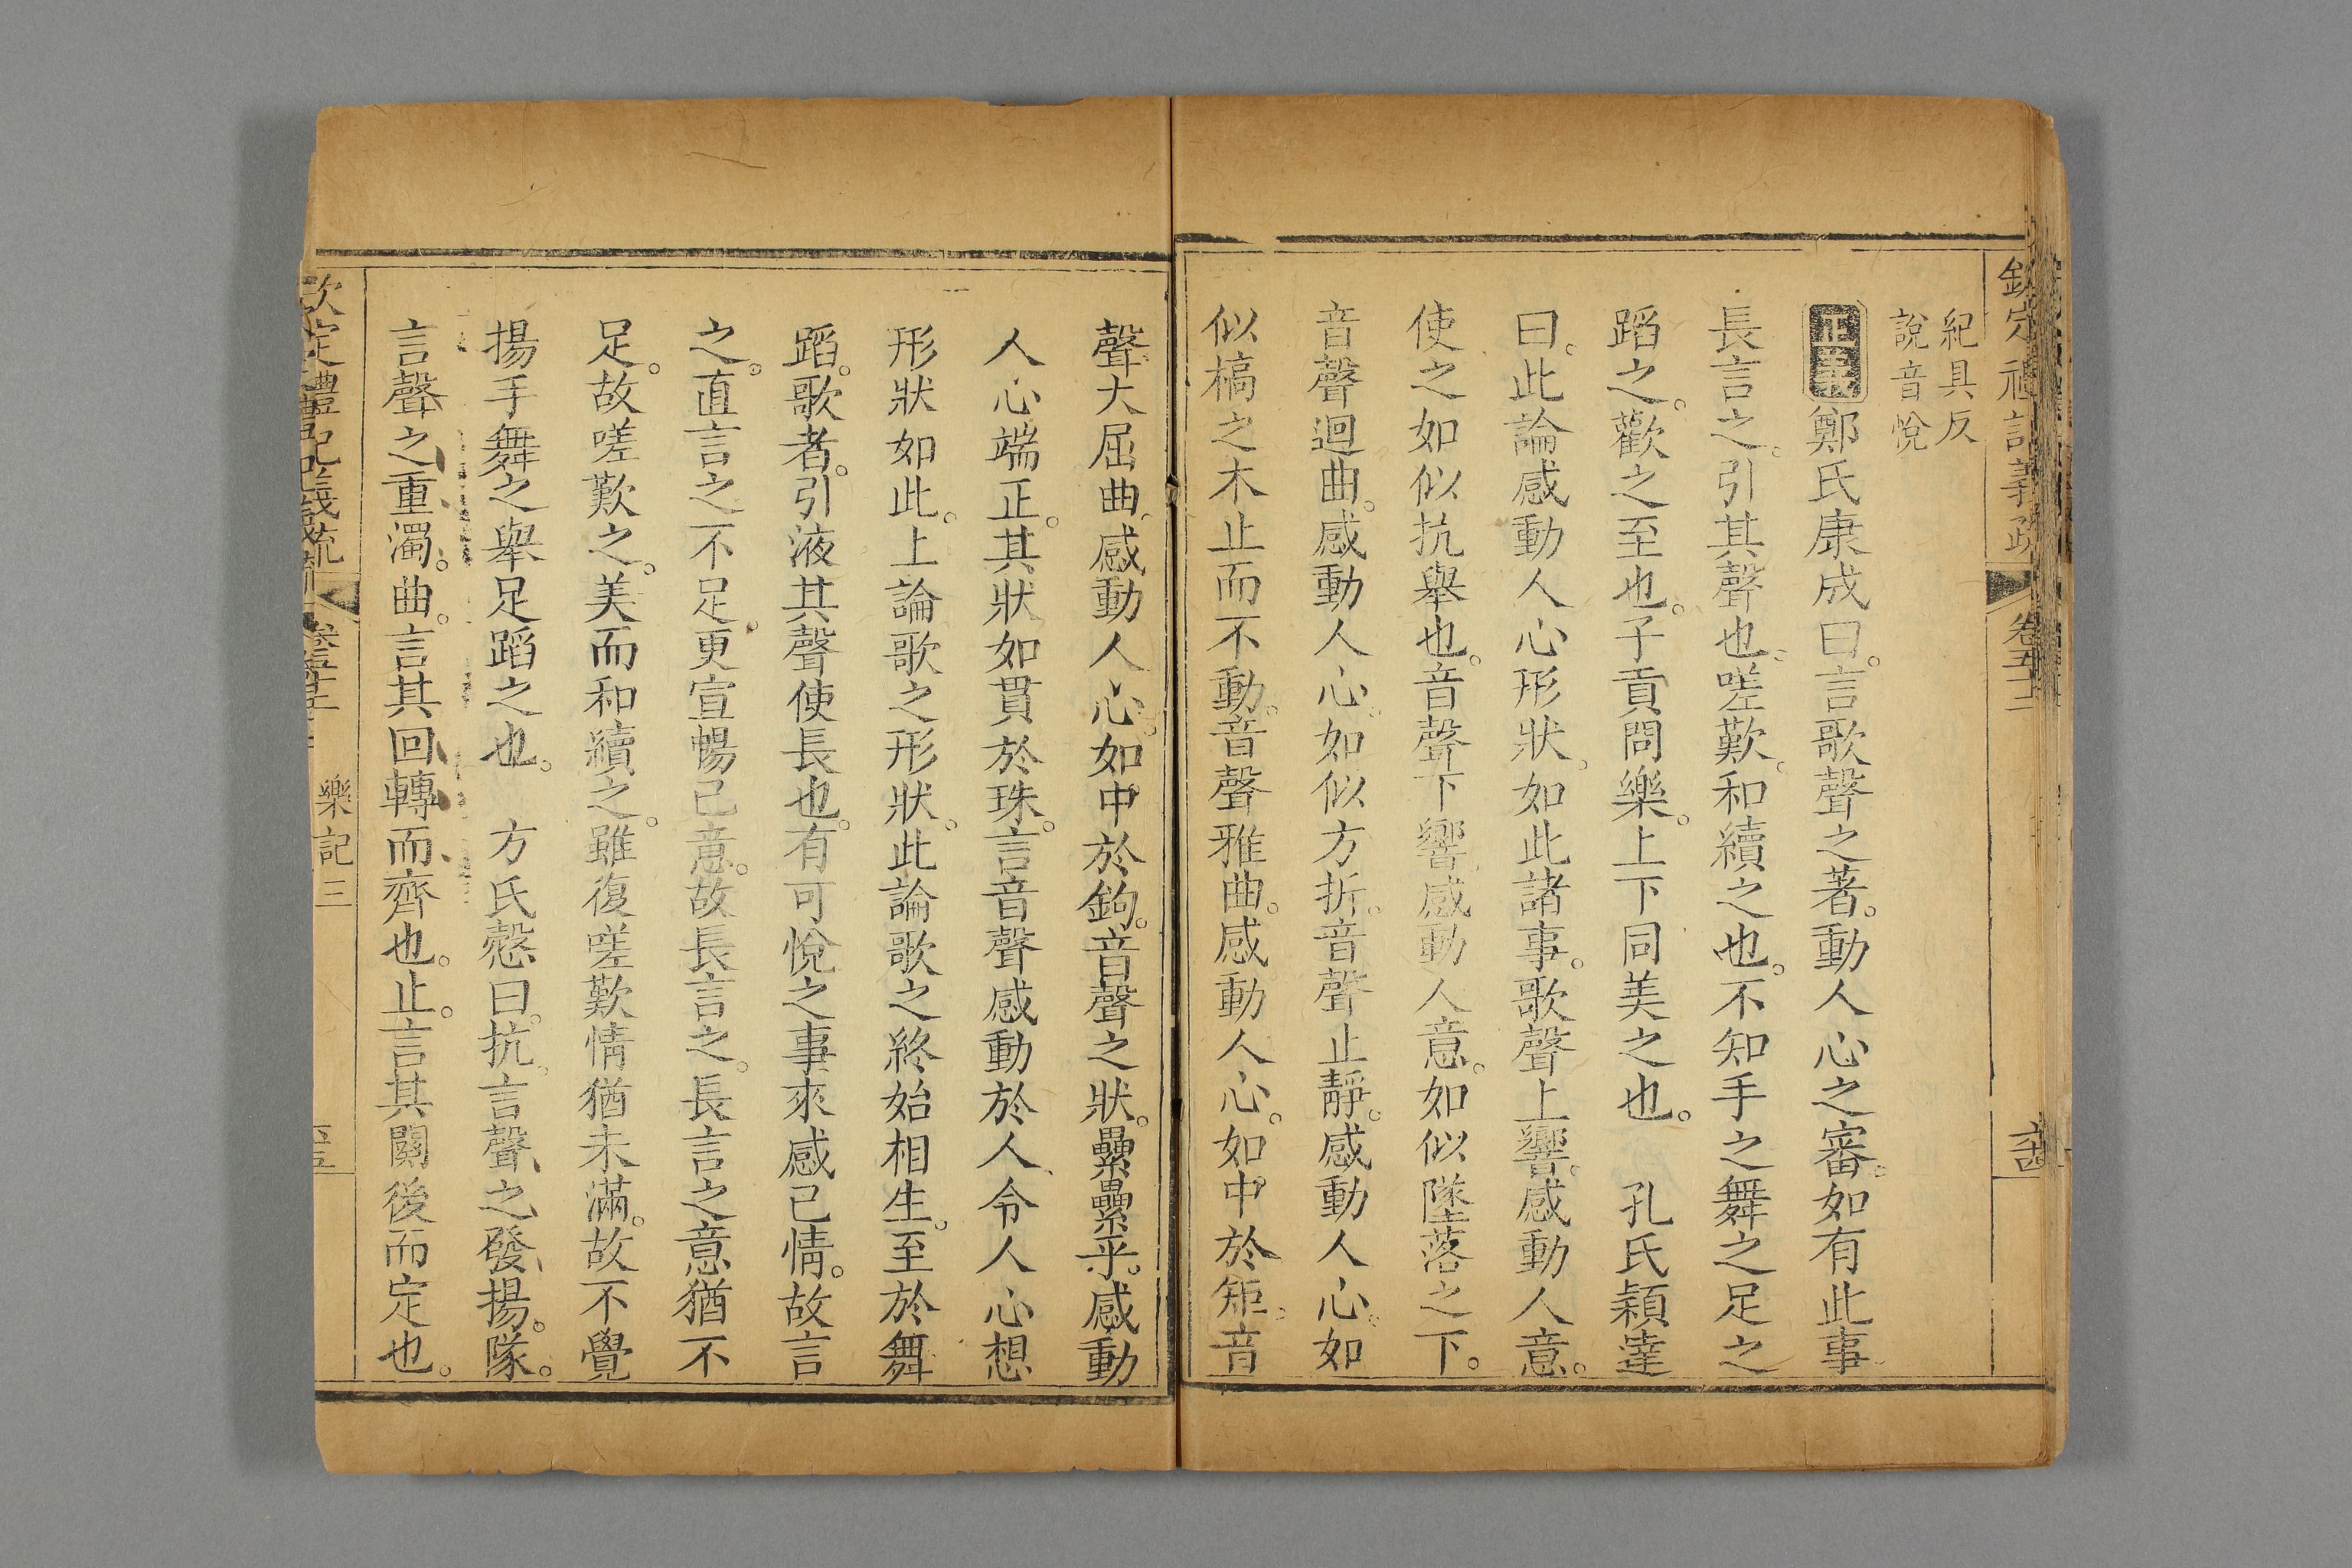 欽定禮記義疏 卷五十二
紀具反
說音悅
正義鄭氏康成曰。言歌聲之著。動人心之審。如有此事
長言之。引其聲也。嗟歎。和續之也。不知手之舞之足之
蹈之。歡之至也。子貢問樂。上下同美之也。 孔氏穎達
曰。此論感動人心形狀。如此諸事。歌聲上響。感動人意。
使之如似抗舉也。音聲下響。感動人意。如似墜落之下。
音聲迴曲。感動人心。如似方折。音聲止靜。感動人心。如
似槁之木止而不動。音聲雅曲。感動人心。如中於矩。音
聲大屈曲。感動人心。如中於鉤。音聲之狀。纍纍乎。感動
人心端正。其狀如貫於珠。言音聲感動於人。令人心想
形狀如此。上論歌之形狀。此論歌之終始相生。至於舞
蹈。歌者。引液其聲使長也。有可悅之事來感己情。故言
之。直言之不足。更宣暢己意。故長言之。長言之意猶不
足。故嗟歎之。美而和續之。雖復嗟歎情猶未滿。故不覺
揚手舞之舉足蹈之也。 方氏慤曰。抗。言聲之發揚。隊。
言聲之重濁。曲。言其回轉而齊也。止。言其闋後而定也。
欽定禮記義疏 樂記三